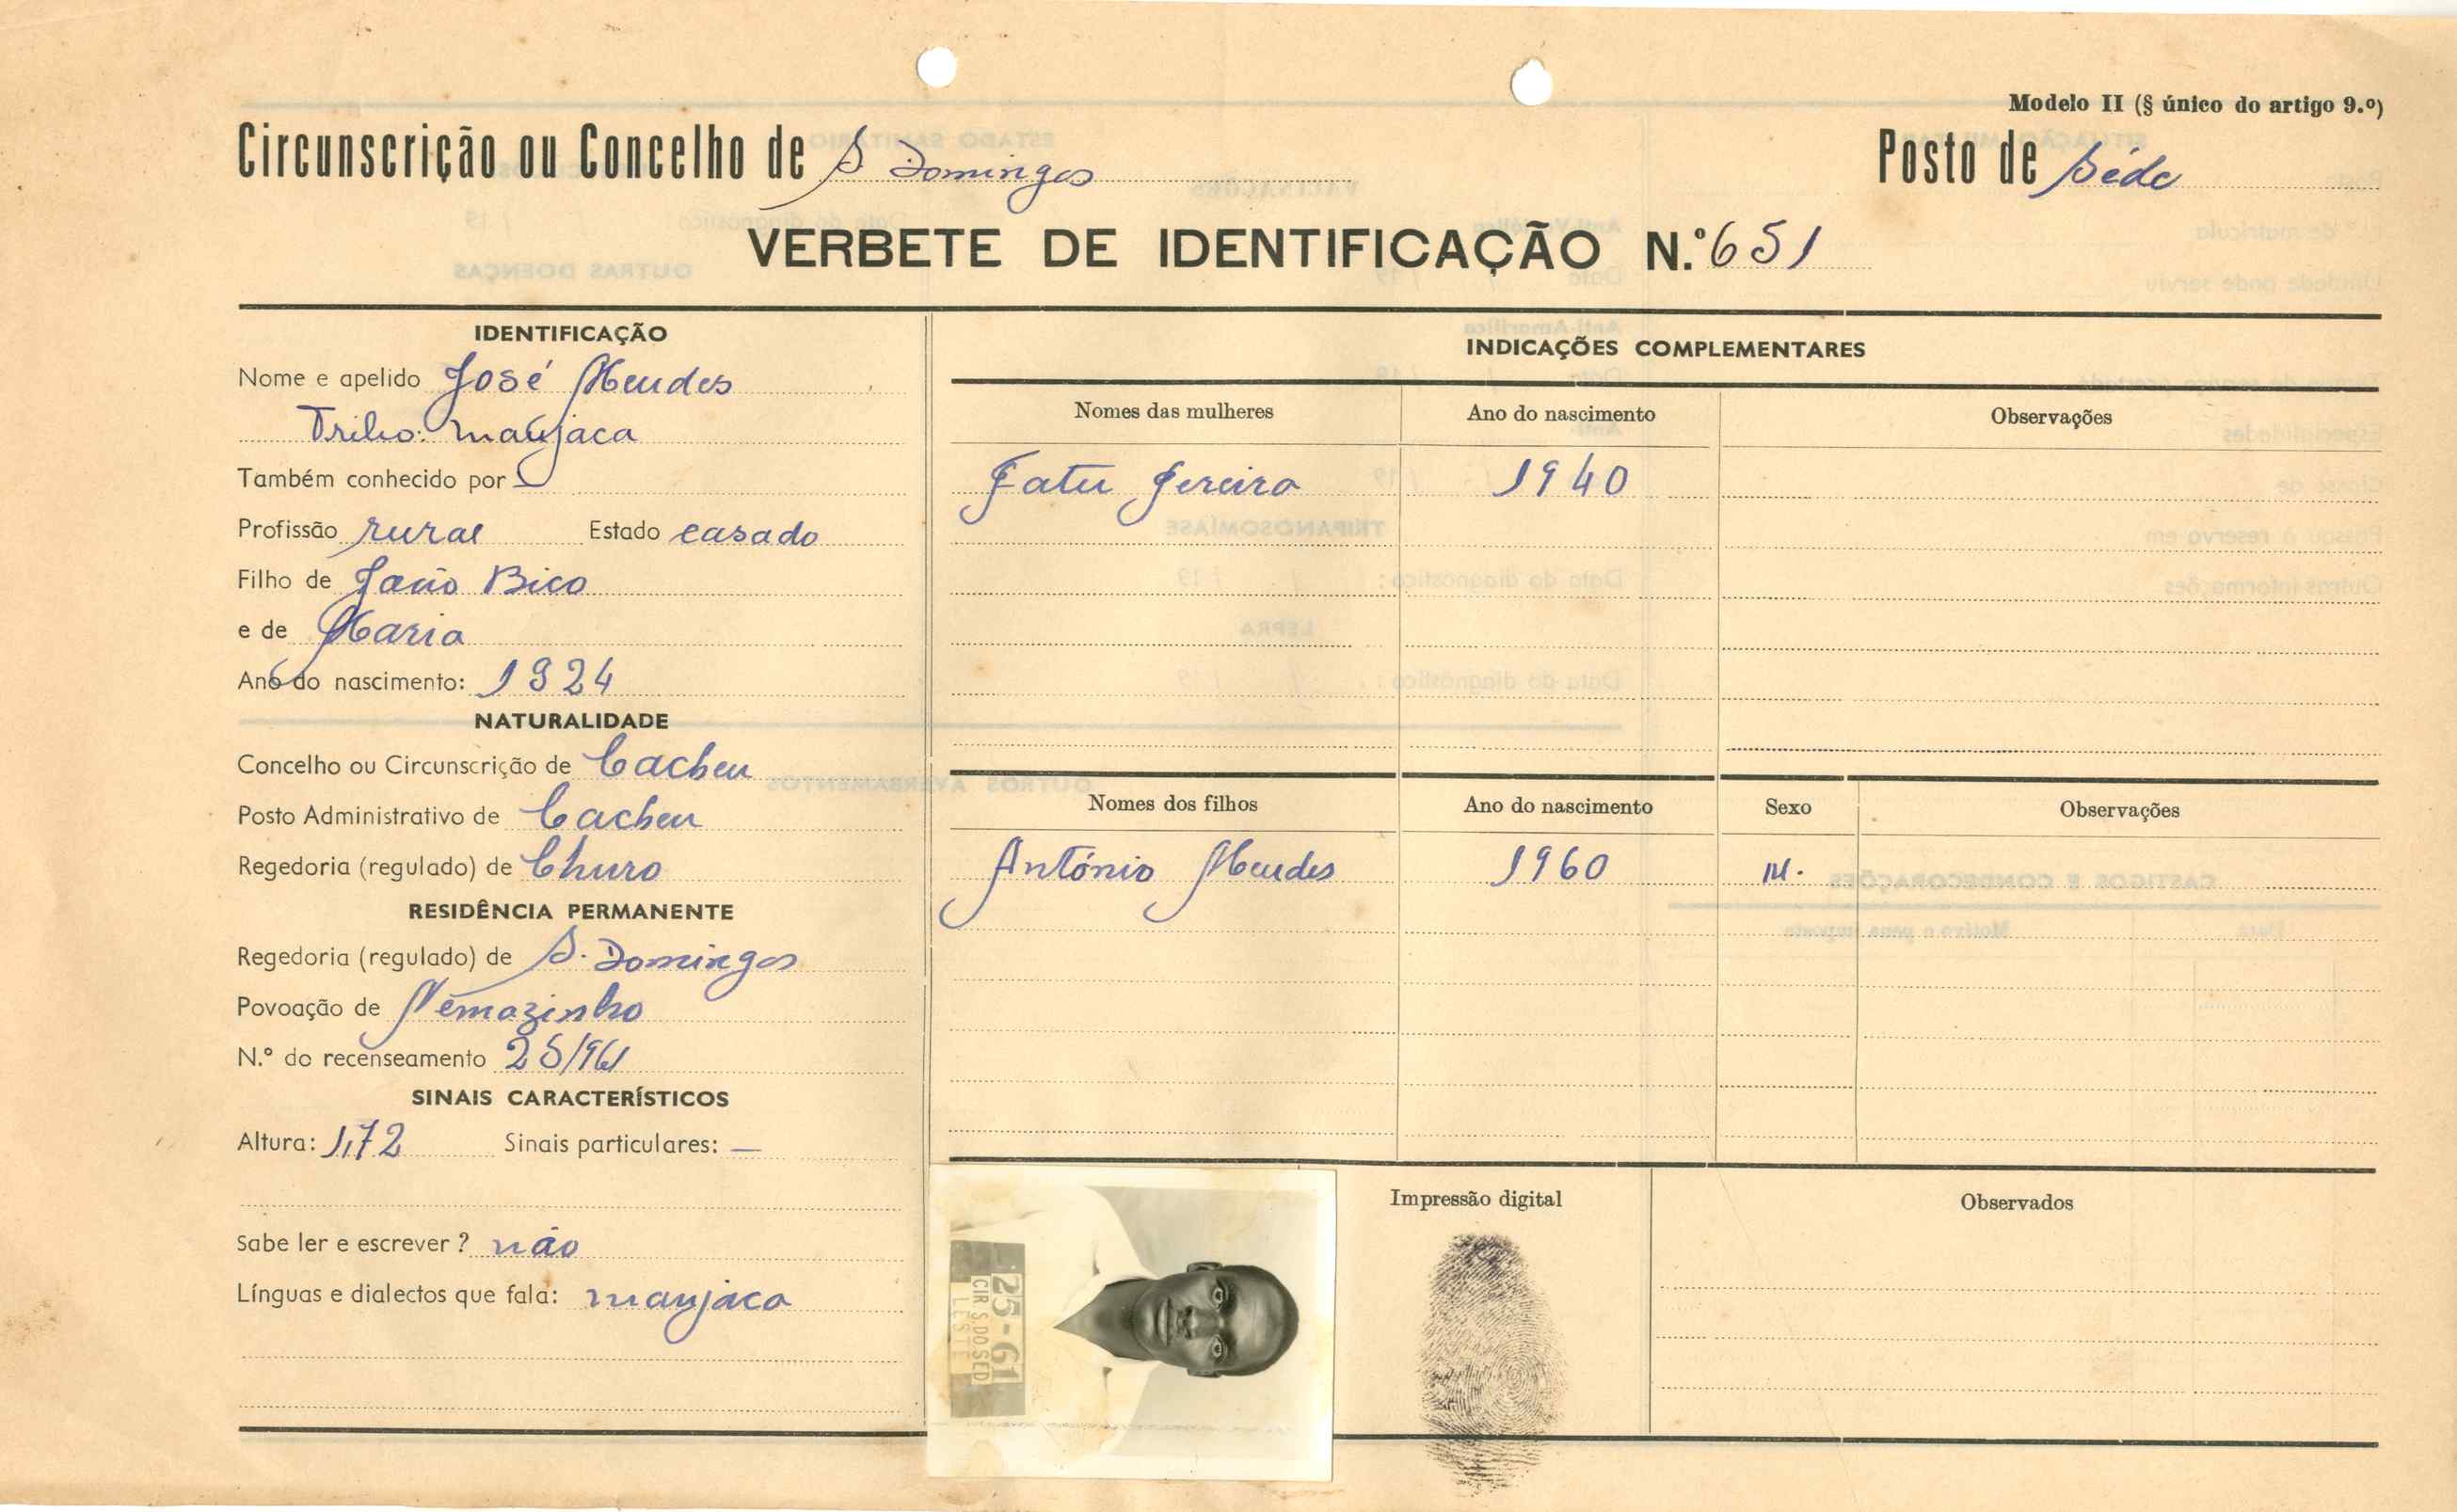 Modelo II (§ único do artigo 9.º)
Circunscrição ou Concelho de S Domingos Posto de Séde
VERBETE DE IDENTIFICAÇÃO N.º 651
IDENTIFICAÇÃO
Nome e apelido José Mendes
manjaca
Também conhecido por
Profissão rural Estado casado
Filho de Bico
e de Maria
Ano do nascimento: 1924
NATURALIDADE
Concelho ou Circunscrição de Cacheu
Posto Administrativo de Cacheu
Regedoria (regulado) de Churo
RESIDÊNCIA PERMANENTE
Regedoria (regulado) de S. Domingos
Povoação de
N.º do recenseamento 25/961
SINAIS CARACTERÍSTICOS
Altura: 1,72 Sinais particulares: —
Sabe ler e escrever? não
Línguas e dialectos que fala: manjaca
INDICAÇÕES COMPLEMENTARES
Nomes das mulheres Ano do nascimento Observações
Fatu 1940
Nomes dos filhos Ano do nascimento Sexo Observações
António Mendes 1960 M.
25-61
CIR.S.DO.SED
LESTE
Impressão digital
Observados